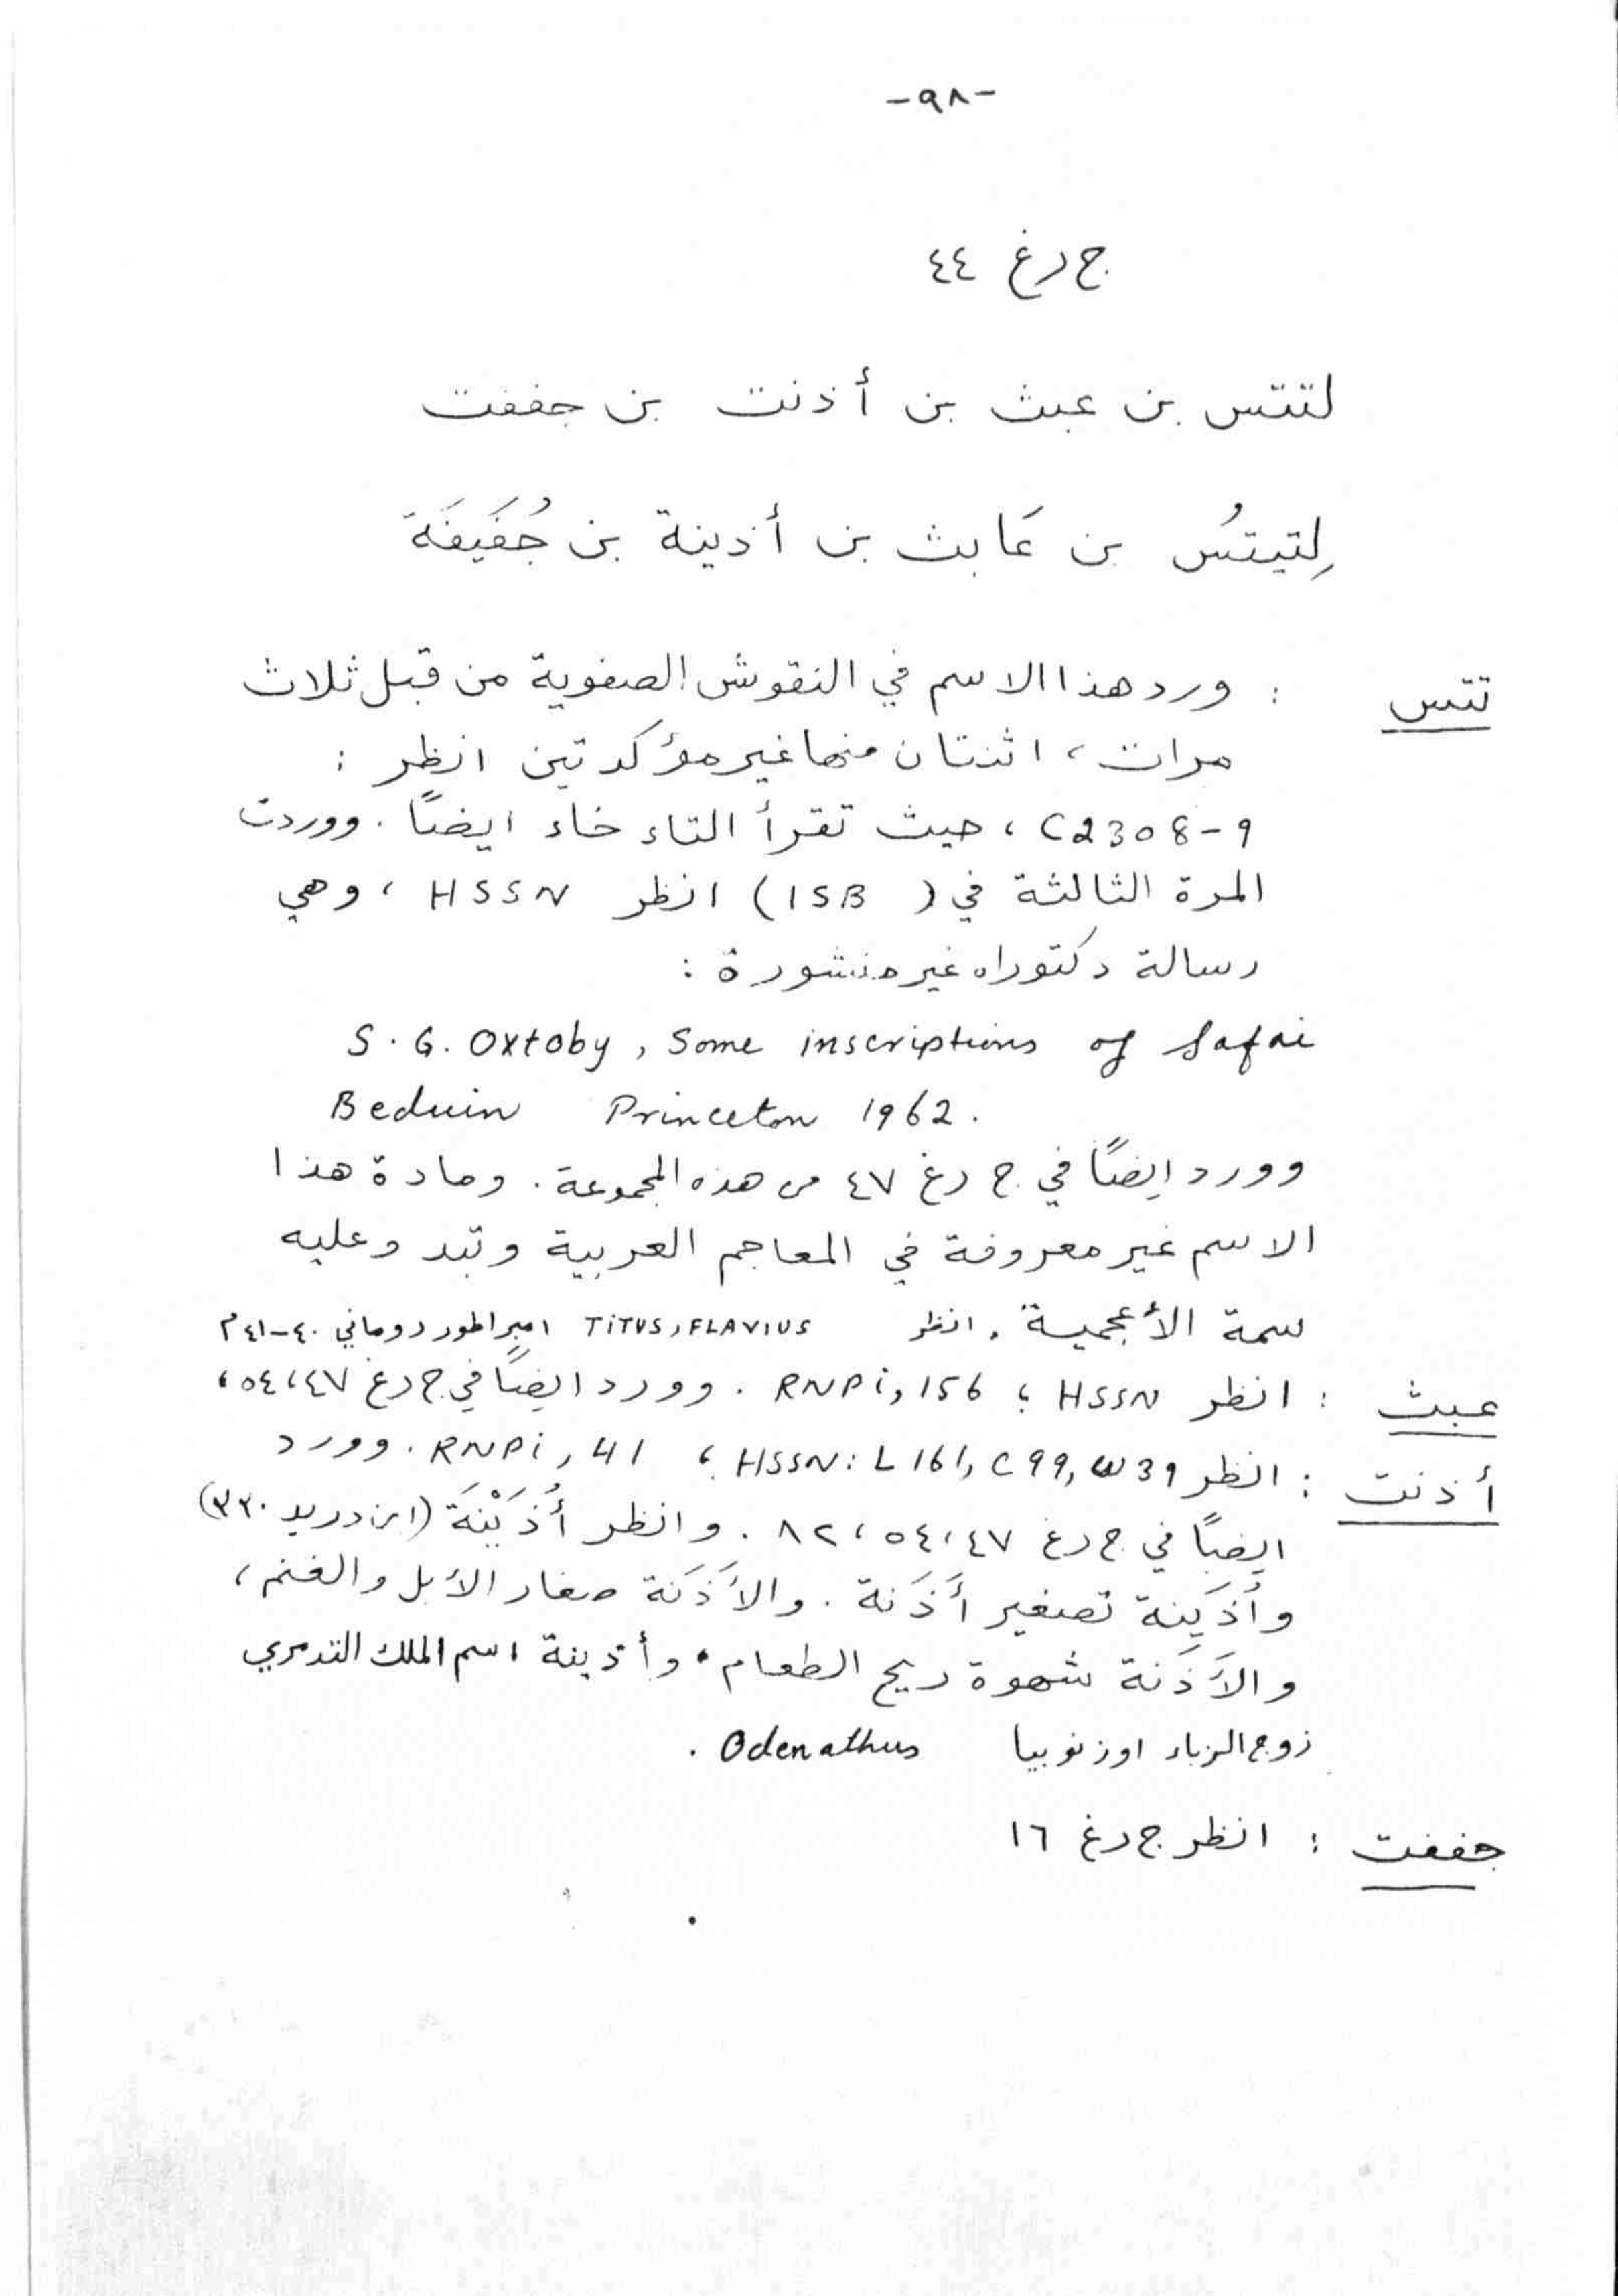 -٩٨-
ج رغ ٤٤
لتتس بن عبث بن أذنت بن جففت
لِتيتُس بن عَابث بن أذينة بن جُفَيفَة
تتس : ورد هذا الاسم في النقوش الصفوية من قبل ثلاث
مرات، اثنتان منها غير مؤكدتين انظر :
C2308-9 ، حيث تقرأ التاء خاء ايضاً. ووردت
المرة الثالثة في (ISB) انظر HSSN ، وهي
رسالة دكتوراه غير منشورة :
S. G. Oxtoby, Some inscriptions of Safai
Beduin Princeton 1962.
وورد ايضاً في ج رغ ٤٧ من هذه المجموعة. ومادة هذا
الاسم غير معروفة في المعاجم العربية وتبدو عليه
سمة الأعجمية. انظر TITUS, FLAVIUS امبراطور روماني ٤٠-٤١م
عبث : انظر HSSN ؛ RNPi, 156 . وورد ايضاً في ج رغ ٤٧، ٥٤،
أذنت : انظر HSSN: L 161, C 99, W 39 ؛ RNPi, 41 . وورد
ايضاً في ج رغ ٤٧، ٥٤، ٨٢ . وانظر أُذَيْنَة (ابن دريد ٣٣٠)
وأُذَينة تصغير أَذَنة . والأَذَنة صغار الأبل والغنم،
والأَذَنة شهوة ريح الطعام. وأذينة اسم الملك التدمري
زوج الزباء او زنوبيا Odenathus .
جففت : انظر ج رغ ١٦